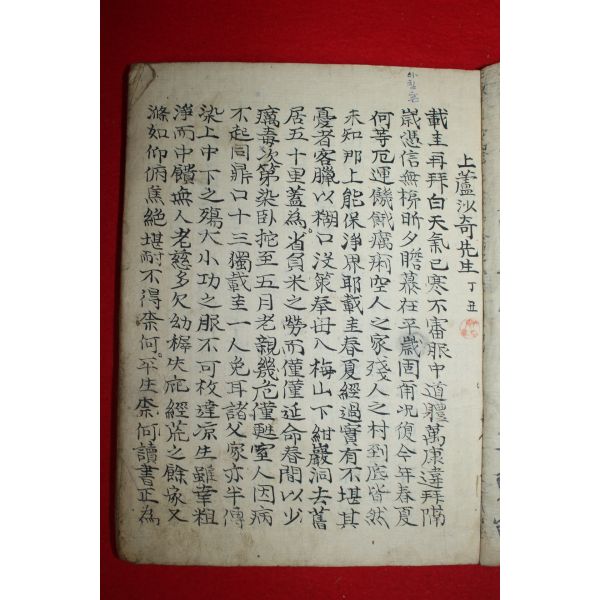 上蘆沙奇先生 丁丑
載圭再拜白天氣已寒不審服中道體萬康違拜隔
歲憑信無梯昕夕瞻慕在平歲固爾況復今年春夏
何等厄運饑饿癘痢空人之家殘人之村到底皆然
未知那上能保淨界耶載圭春夏經過實有不堪其
憂者客臘以糊口沒策奉母入梅山下紺巖洞去舊
居五十里蓋為省負米之勞而僅僅延命春間以少
癘毒次第染臥拕至五月老親幾危僅甦室人因病
不起同鼎口十三獨載圭一人免耳諸父家亦半傳
染上中下之殤大小功之服不可枚達凉生雖幸粗
淨而中饋無人老慈多欠幼穉失庇經荒之餘家又
滌如仰俯焦絕堪耐不得奈何平生柰何讀書正為